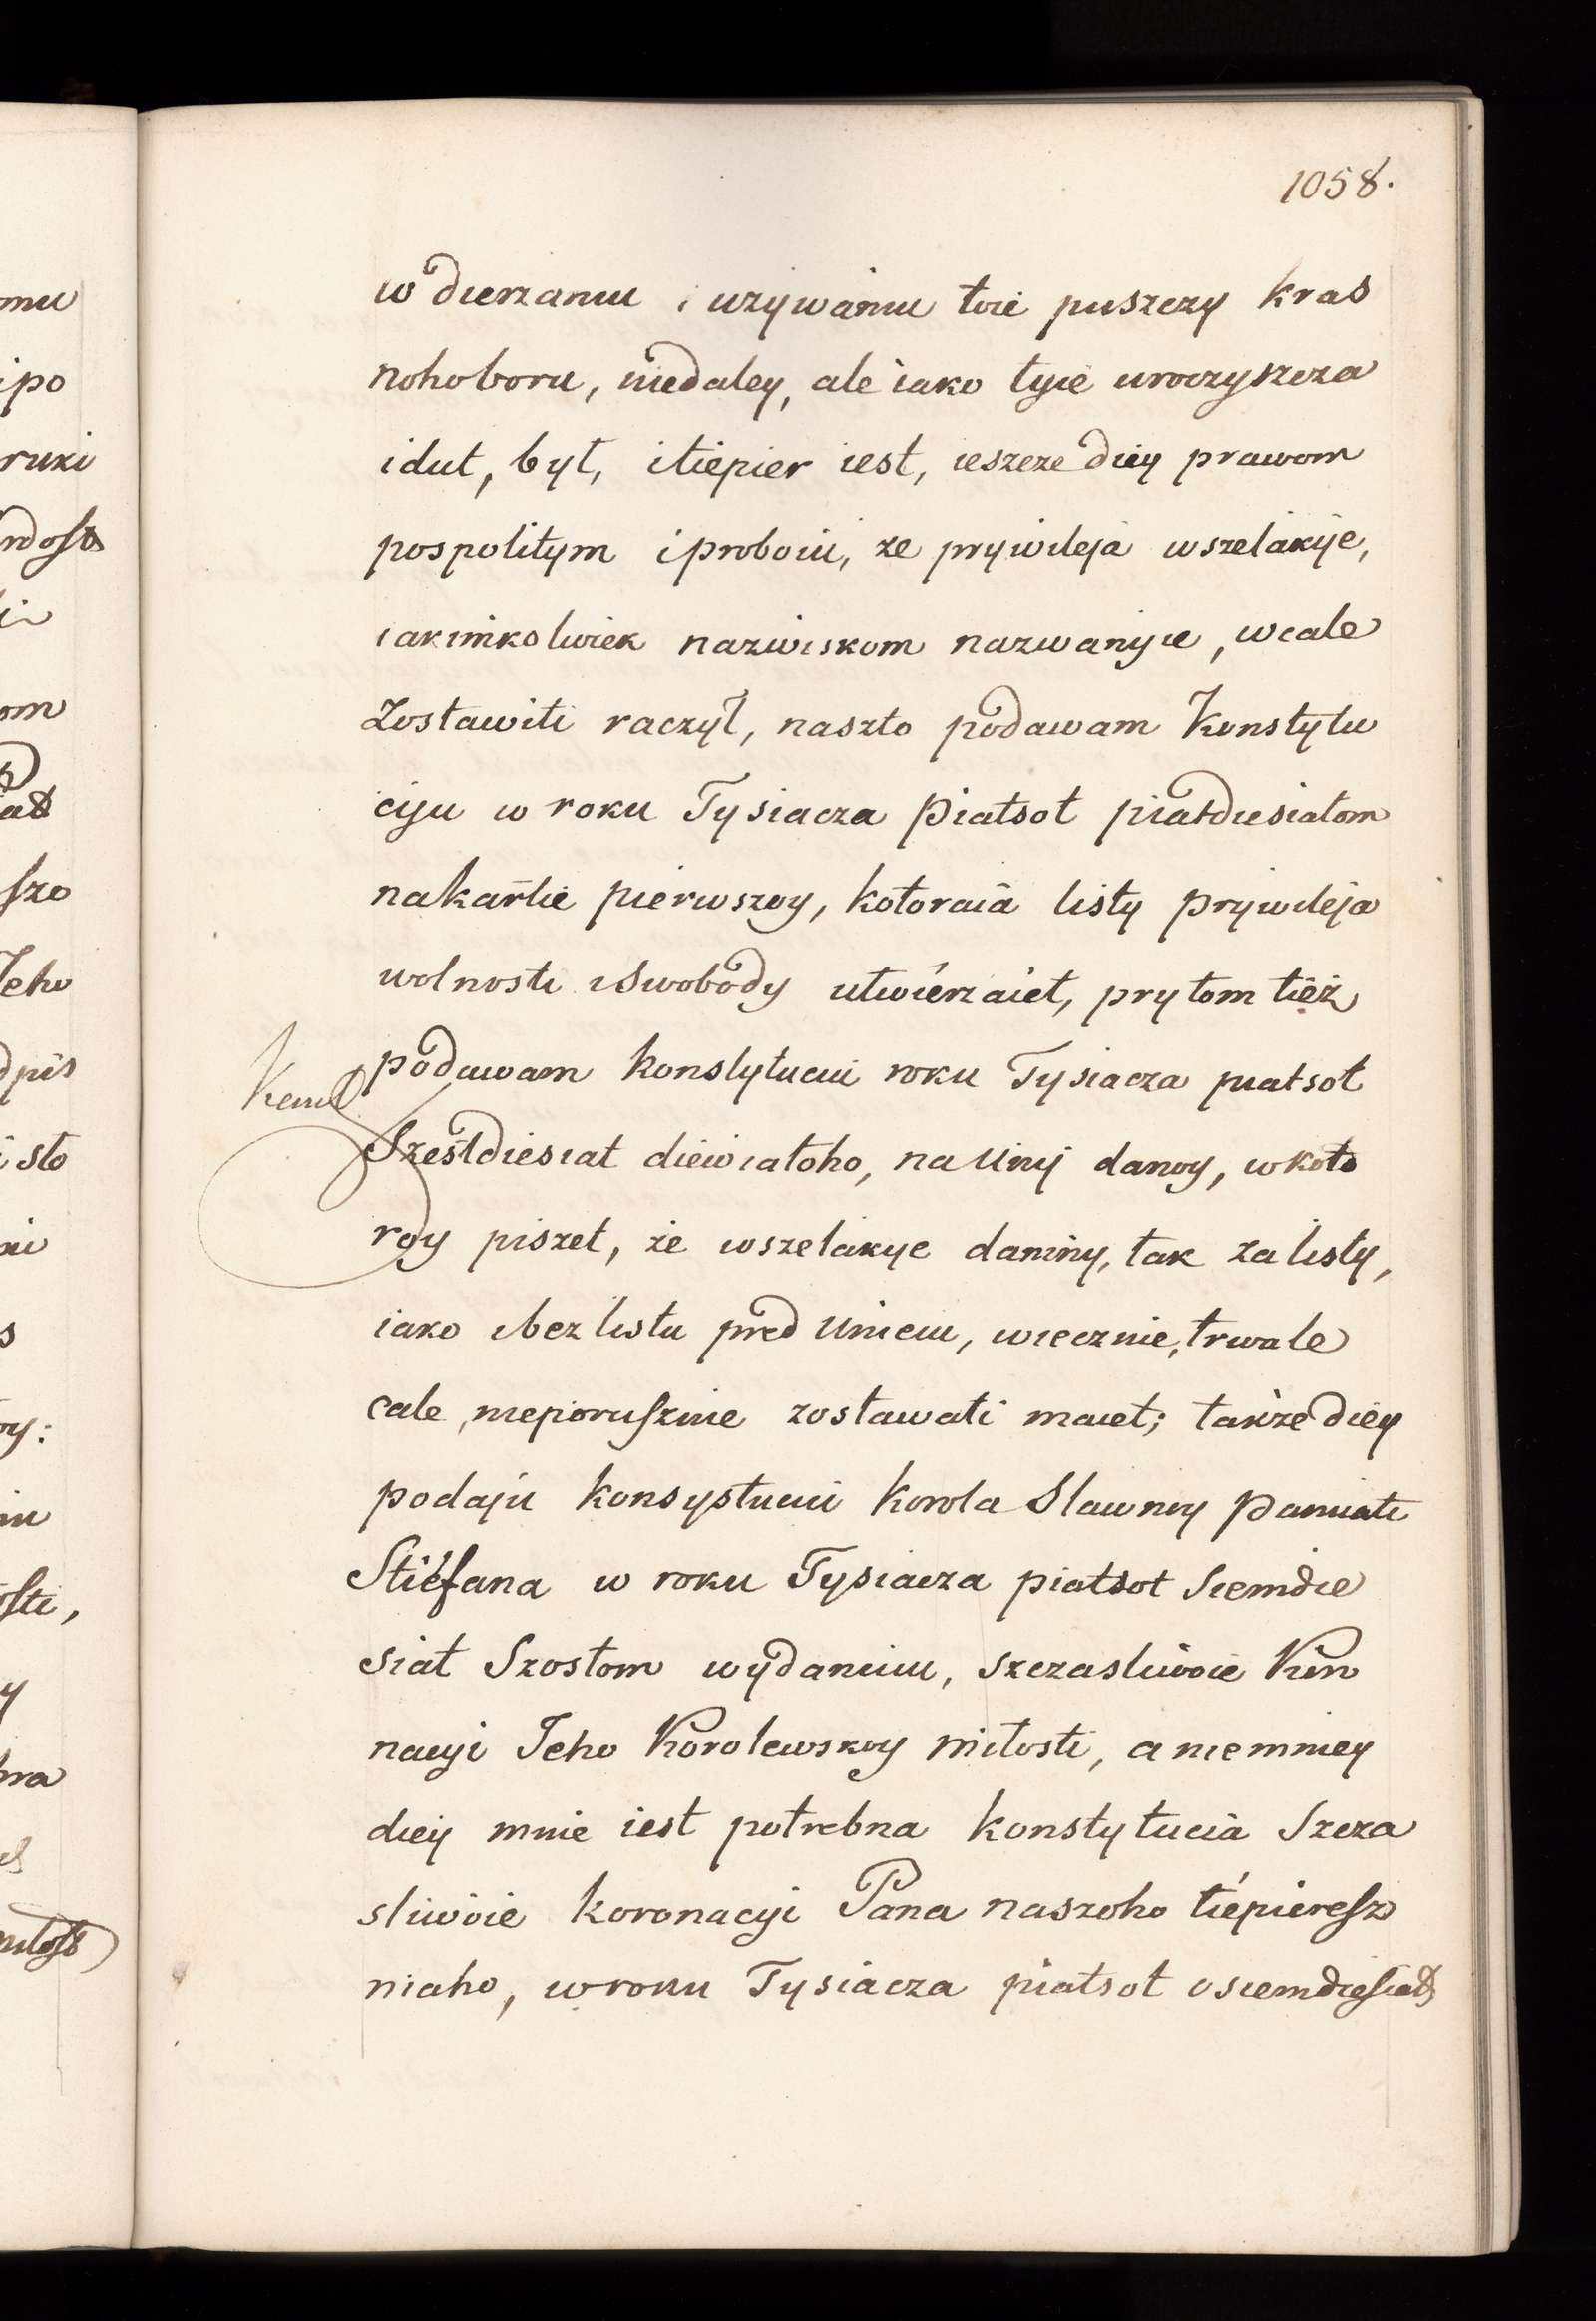 1058.
w dierzaniu i używaniu toie puszczy kras
nohoboru, niedaley, ale iako tyie uroczyszcza
idut, był, i tiepier iest, ieszcze diey prawom
pospolitym i proboiu, że prywileja wszelakije,
iakimkolwiek nazwiskom nazwanyie, wcale
Zostawiti raczył, naszto podawam Konstytu
ciju w roku Tysiacza Piatsot piatdiesiatom
na kartie pierwszoy, kotoraia listy prywileja
wolnosti i Swobody utwierżaiet, pry tom tież
podawam konstytucii roku Tysiacza piatsot
Szestdiesiat diewiatoho, na Unij danoy, w koto
roy piszet, że wszelakye daniny, tak za listy,
iako i bez listu pred Unieiu, wiecznie, trwale
cale, nieporusznie zostawati maiet; także diey
podaju konsystucii korola Sławnoy Pamiati
Stiefana w roku Tysiacza piatsot Siemdie
siat Szostom wydaniiu, szczasliwoie Kон
nacyi Jeho Korolewskoy miłosti, a niemniey
diey mnie iest potrebna konstytucia Szcza
sliwoie koronacyi Pana naszoho tiepieresz
niaho, w roku Tysiacza piatsot osiemdiesiat
mu
i po
ruki
om
szo
Jeho
dpis
i sto